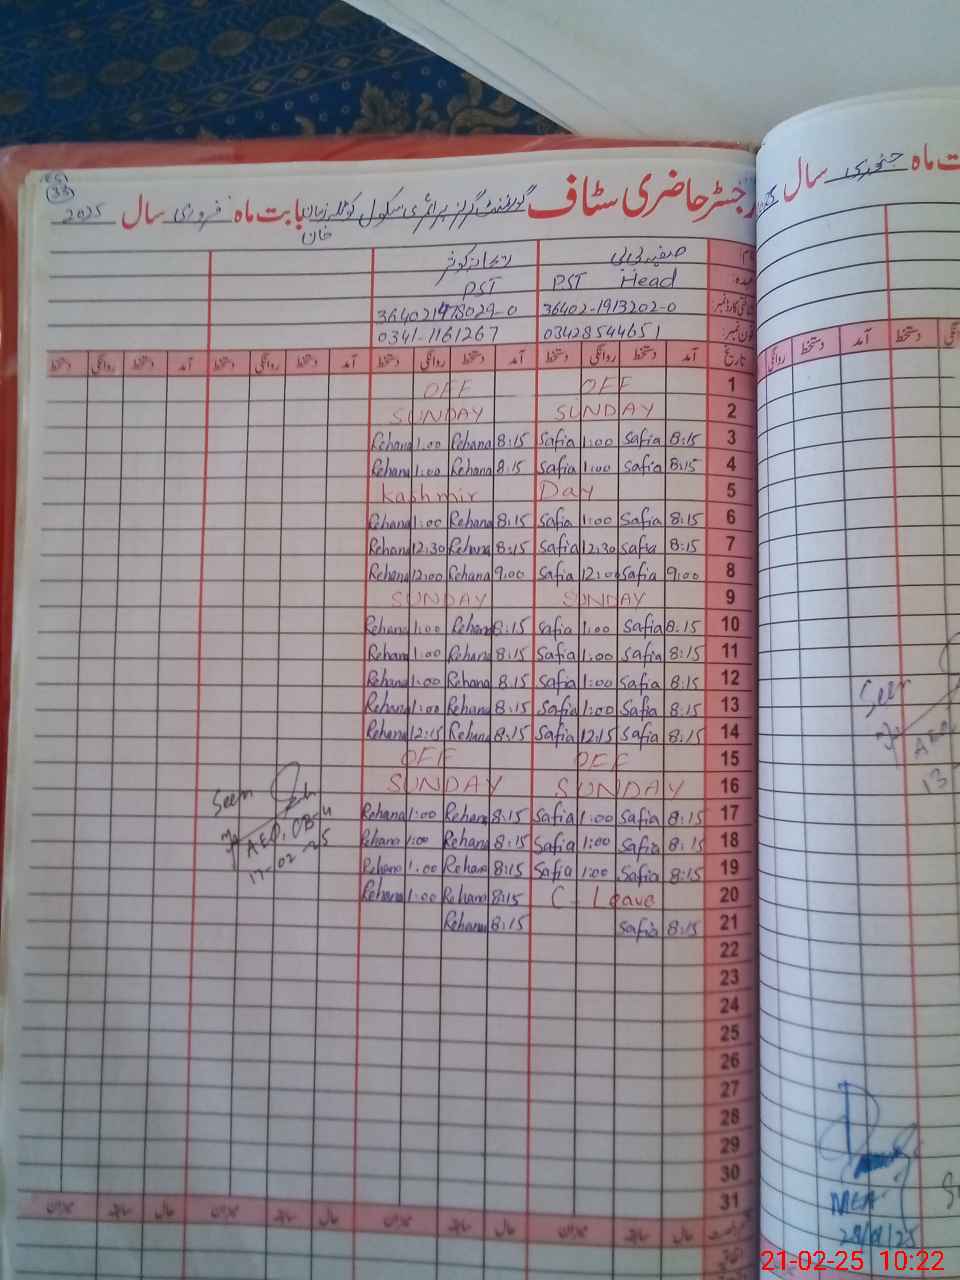 رجسٹر حاضری سٹاف گورنمنٹ گرلز پرائمری سکول کوٹلہ زمان خان بابت ماہ فروری سال 2025
33
نام: صفیہ بی بی ریحانہ کوثر
عہدہ: PST Head PST
شناختی کارڈ نمبر: 36402-1913202-0 364021478029-0
فون نمبر: 03428544651 0341-1161267
تاریخ آمد دستخط روانگی دستخط آمد دستخط روانگی دستخط آمد دستخط روانگی دستخط آمد دستخط روانگی دستخط
1 OFF OFF
2 SUNDAY SUNDAY
3 8:15 Safia 1:00 Safia 8:15 Rehana 1:00 Rehana
4 8:15 Safia 1:00 Safia 8:15 Rehana 1:00 Rehana
5 Kashmir Day
6 8:15 Safia 1:00 Safia 8:15 Rehana 1:00 Rehana
7 8:15 Safia 12:30 Safia 8:15 Rehana 12:30 Rehana
8 9:00 Safia 12:00 Safia 9:00 Rehana 12:00 Rehana
9 SUNDAY SUNDAY
10 8:15 Safia 1:00 Safia 8:15 Rehana 1:00 Rehana
11 8:15 Safia 1:00 Safia 8:15 Rehana 1:00 Rehana
12 8:15 Safia 1:00 Safia 8:15 Rehana 1:00 Rehana
13 8:15 Safia 1:00 Safia 8:15 Rehana 1:00 Rehana
14 8:15 Safia 12:15 Safia 8:15 Rehana 12:15 Rehana
15 OFF OFF
16 SUNDAY SUNDAY
17 8:15 Safia 1:00 Safia 8:15 Rehana 1:00 Rehana
18 8:15 Safia 1:00 Safia 8:15 Rehana 1:00 Rehana
19 8:15 Safia 1:00 Safia 8:15 Rehana 1:00 Rehana
20 C- Leave 8:15 Rehana 1:00 Rehana
21 8:15 Safia 8:15 Rehana
22
23
24
25
26
27
28
29
30
31
Seen
AEO
17-02-25
حال سابقہ میزان حال سابقہ میزان حال سابقہ میزان حال سابقہ میزان
ت ماہ جنوری سال
آمد دستخط روانگی
Seen
AEO
13
MEA
28/01/25
21-02-25 10:22